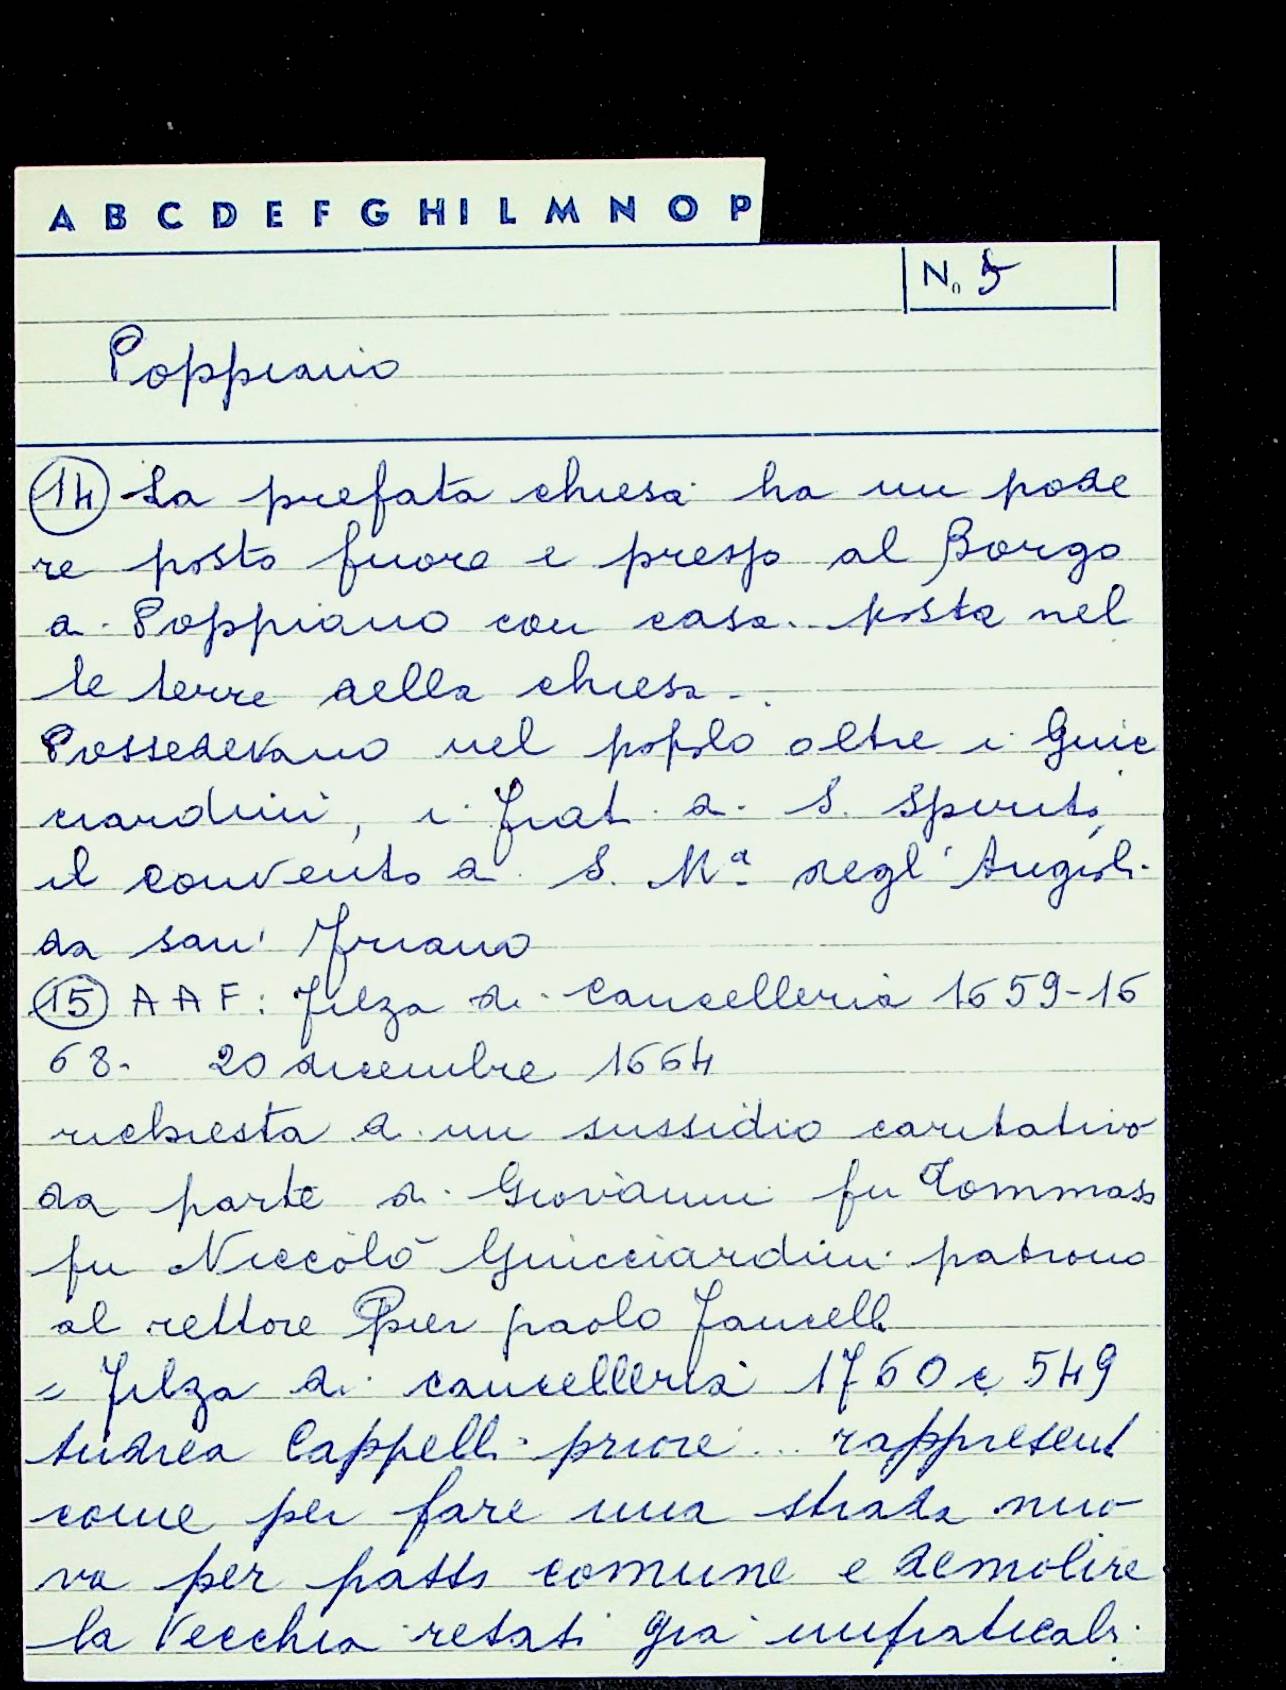 A B C D E F G H I L M N O P
N. 5
Poppiano
14 La prefata chiesa ha un pode
re posto fuore e presso al Borgo
di Poppiano con casa posta nel
le terre della chiesa.
Possedevano nel popolo oltre i Guic
ciardini, i frati di S. Spirito,
il convento di S. Mª degl'Angioli
da san Friano
15 A A F: Filza di Cancelleria 1659-16
68. 20 dicembre 1664
richiesta di un sussidio caritativo
da parte di Giovanni fu Tommaso
fu Niccolò Guicciardini patrono
al rettore Pier paolo Fancelli
= Filza di cancelleria 1760 c 549
Andrea Cappelli priore ... rappresent
come per fare una strada nuo-
va per passo comune e demolire
la vecchia già impraticabi